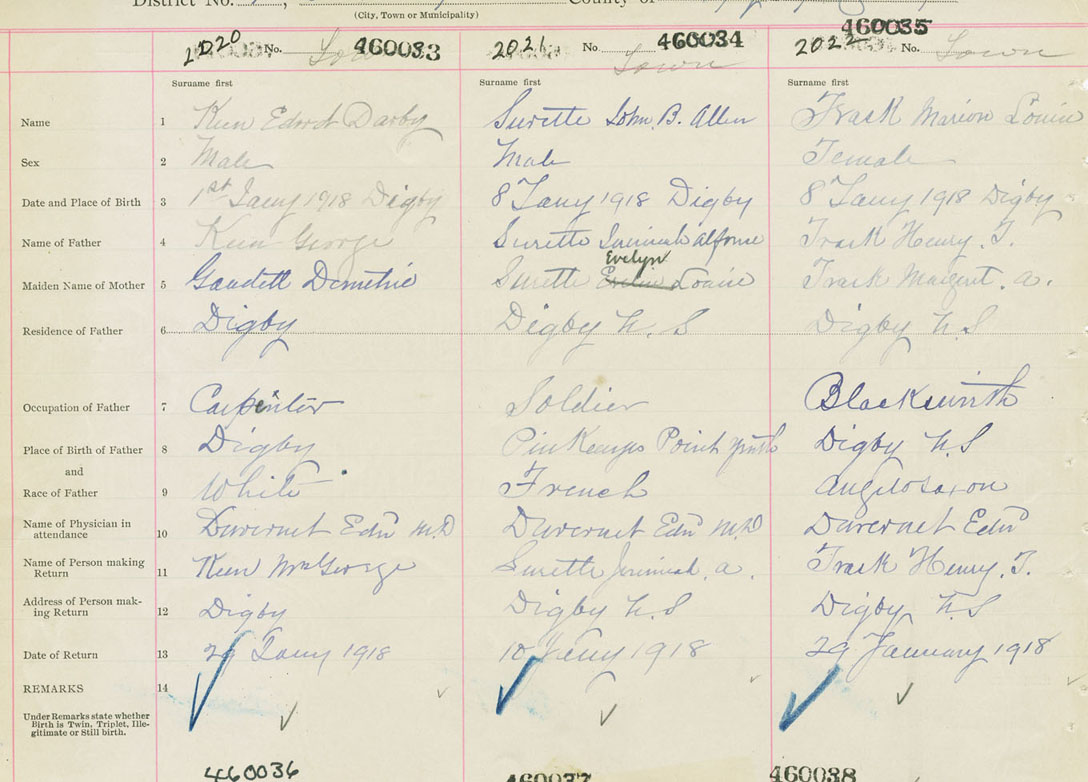 District No. County of
(City, Town or Municipality)
2020 No. 460033 2021 No 460034 Town 2022 No. 460035 Town
Surname first Surname first Surname first
Name 1 Keen Edwd Darby Surette John B. Allen Track Marion Louise
Sex 2 Male Male Female
Date and Place of Birth 3 1st Jany 1918 Digby 8 Jany 1918 Digby 8 Jany 1918 Digby
Name of Father 4 Keen George Surette Jerimiah Alfonse Track Henry. T.
Evelyn
Maiden Name of Mother 5 Gaudett Demetrie Surette Louise Track Margret. a.
Residence of Father 6 Digby Digby N. S Digby N. S
Occupation of Father 7 Carpenter Soldier Blacksmith
Place of Birth of Father 8 Digby Point Digby N. S
and
Race of Father 9 White French Anglosaxon
Name of Physician in
attendance 10 Duvernet Edn M.D Duvernet Edn M.D Duvernet Edn
Name of Person making
Return 11 Keen Wm George Surette Jerimiah. a. Track Henry. T.
Address of Person mak-
ing Return 12 Digby Digby N. S Digby N. S
Date of Return 13 29 Jany 1918 10 Jany 1918 29 January 1918
REMARKS 14
Under Remarks state whether
Birth is Twin, Triplet, Ille-
gitimate or Still birth.
460036 460037 460038